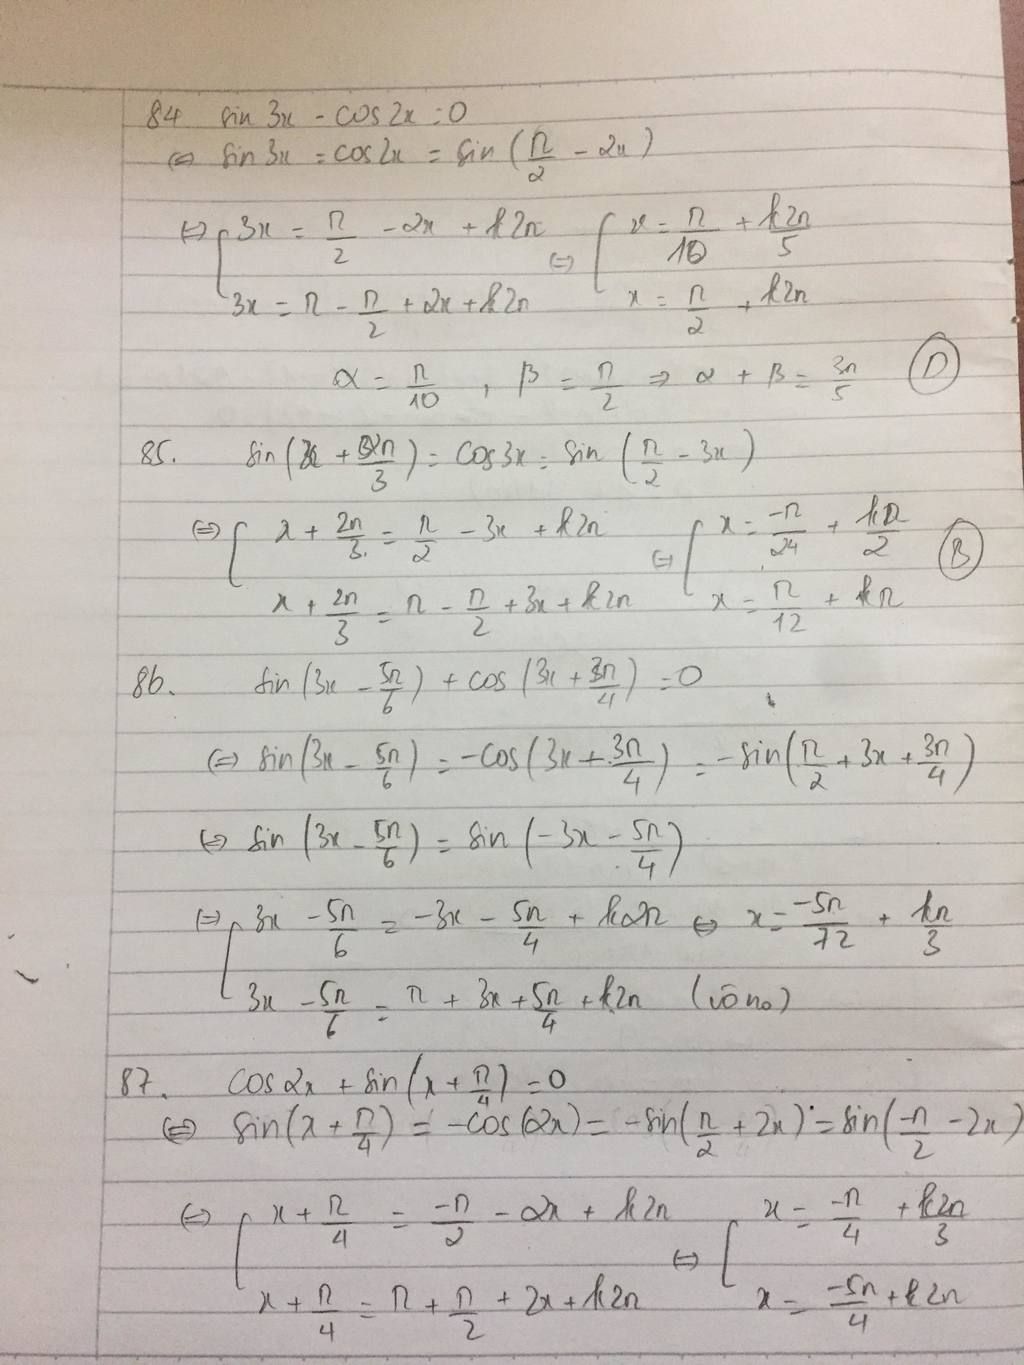 84 sin 3x - cos 2x = 0
⇔ sin 3x = cos 2x = sin (π/2 - 2x)
⇔ [ 3x = π/2 - 2x + k2π ⇔ [ x = π/10 + k2π/5
3x = π - π/2 + 2x + k2π x = π/2 + k2π
α = π/10 , β = π/2 ⇒ α + β = 3π/5 (D)
85. sin (x + 2π/3) = cos 3x = sin (π/2 - 3x)
⇔ [ x + 2π/3 = π/2 - 3x + k2π ⇔ [ x = -π/24 + kπ/2 (B)
x + 2π/3 = π - π/2 + 3x + k2π x = π/12 + kπ
86. sin (3x - 5π/6) + cos (3x + 3π/4) = 0
⇔ sin (3x - 5π/6) = -cos (3x + 3π/4) = -sin (π/2 + 3x + 3π/4)
⇔ sin (3x - 5π/6) = sin (-3x - 5π/4)
⇔ [ 3x - 5π/6 = -3x - 5π/4 + k2π ⇔ x = -5π/72 + kπ/3
3x - 5π/6 = π + 3x + 5π/4 + k2π (vô no)
87. cos 2x + sin (x + π/4) = 0
⇔ sin (x + π/4) = -cos (2x) = -sin (π/2 + 2x) = sin (-π/2 - 2x)
⇔ [ x + π/4 = -π/2 - 2x + k2π ⇔ [ x = -π/4 + k2π/3
x + π/4 = π + π/2 + 2x + k2π x = -5π/4 + k2π